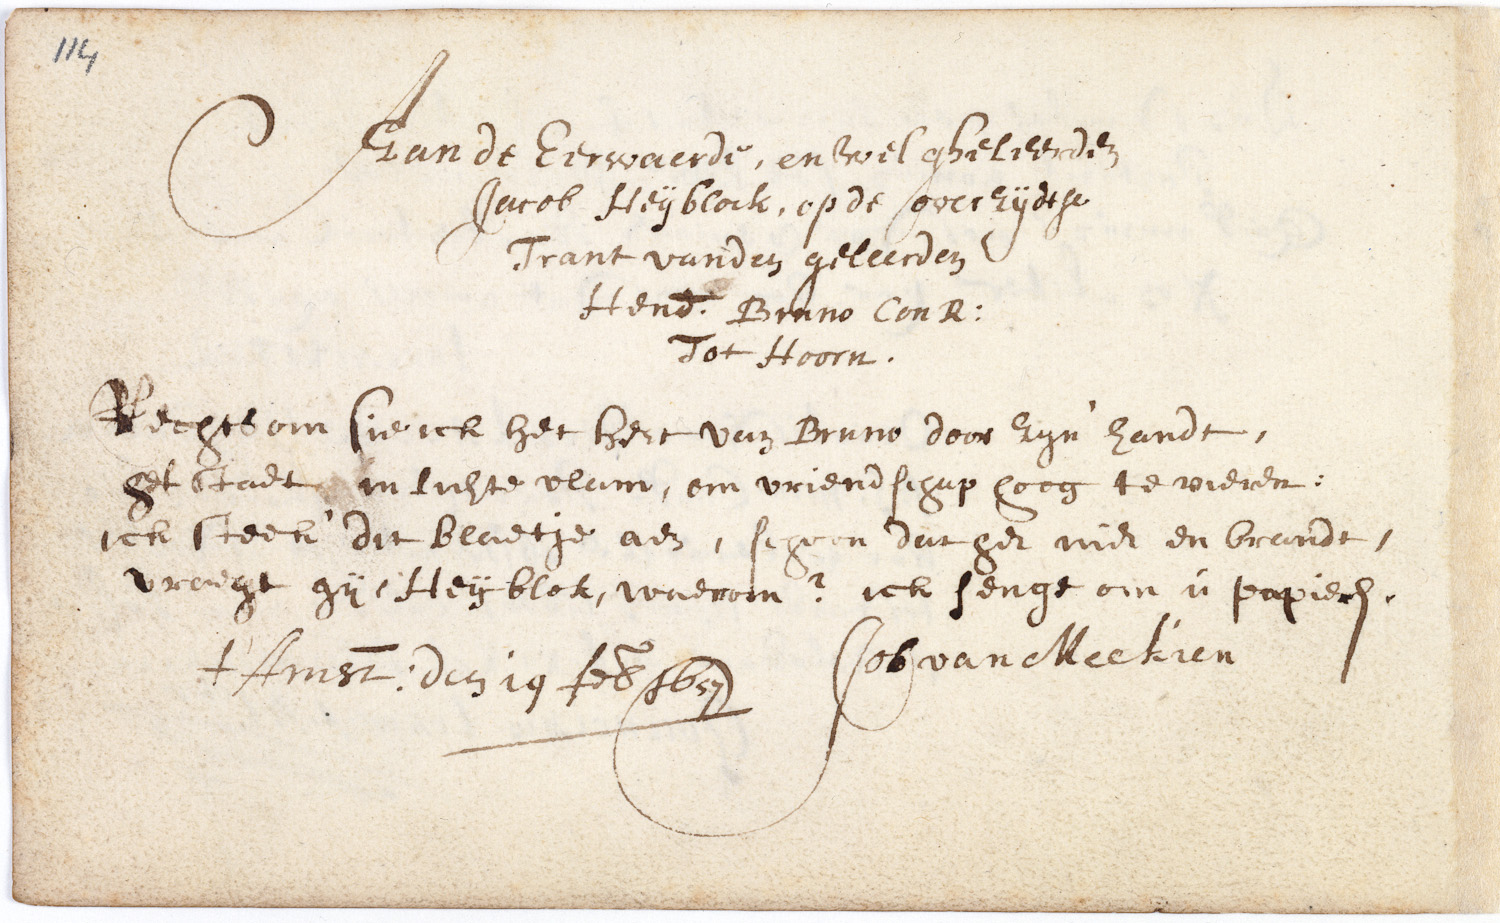 114
Aan de Eerwaerde, en wel gheleerden
Jacob Heyblock, op de overzydtse
Trant vanden geleerden
Hend. Bruno ConR:
Tot Hoorn.
Rechts om sie ick het hert van Bruno door zyn' handt,
het staet in lichte vlam, om vriendschap hoog te vieren:
ick steek' dit blaetje aen, schoon dat het niet en brandt,
vraegt gy, Heyblok, waerom? ick senge om u papier.
t' Amst: den 19 feb 1657
Job van Meekren